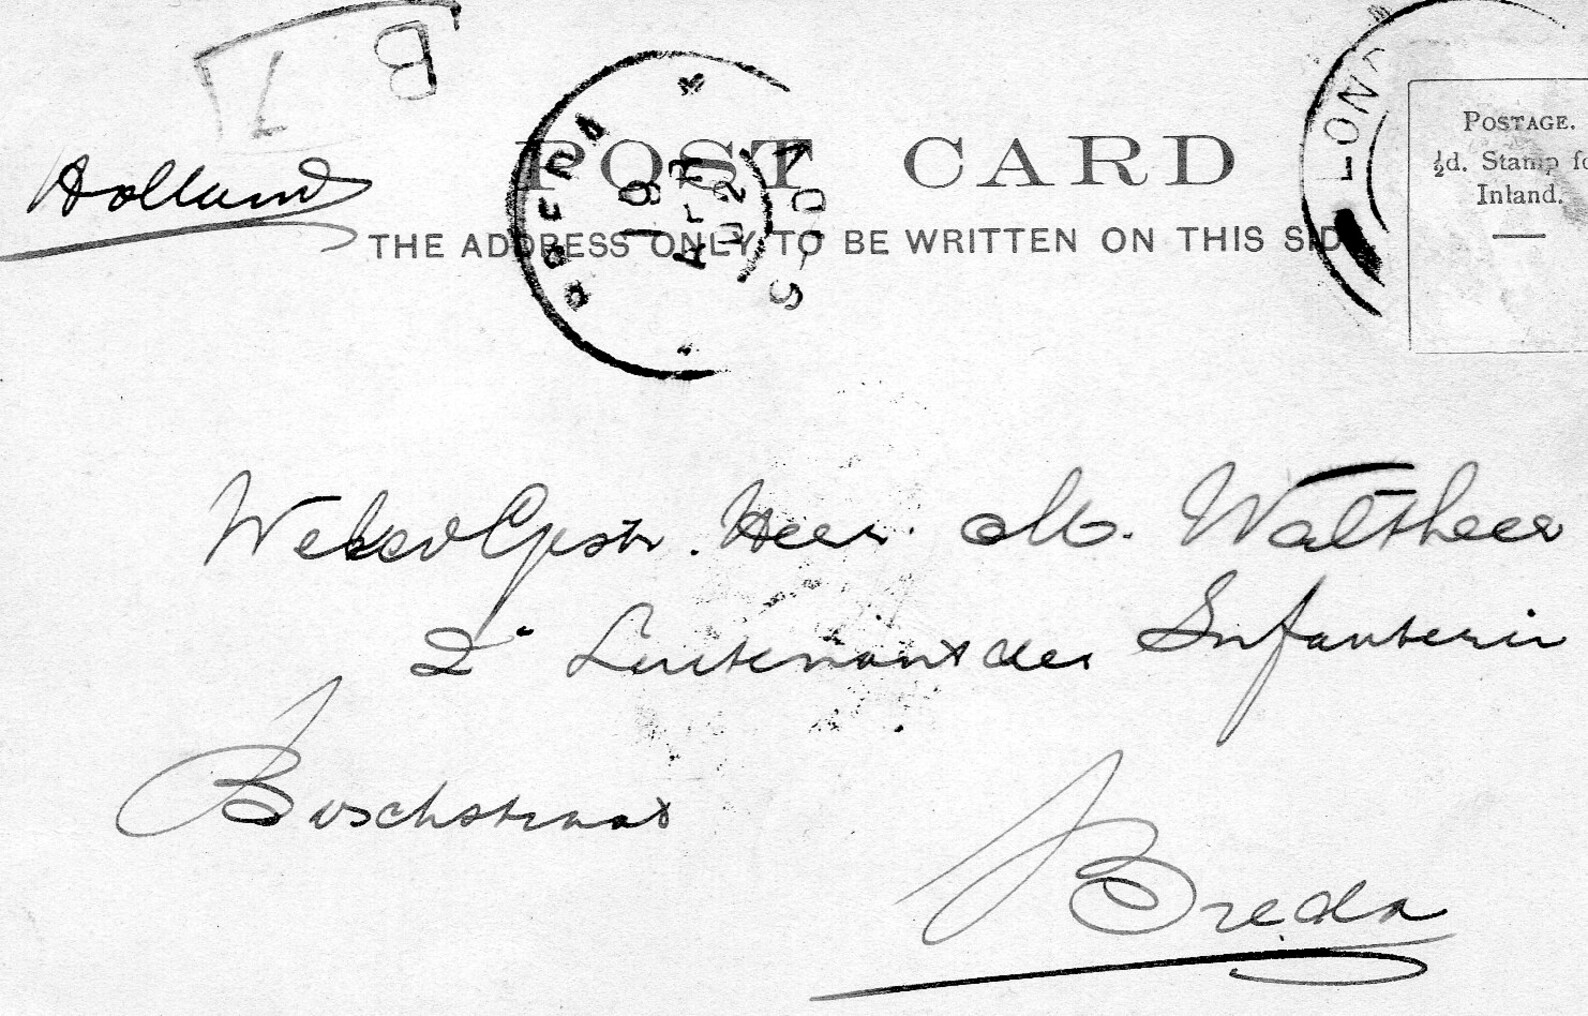 B
7
Holland
POST CARD
THE ADDRESS ONLY TO BE WRITTEN ON THIS SIDE
BREDA
19 APR 02
LOND
POSTAGE.
½d. Stamp fo
Inland.
Heer M. Waltheer
2e Luitenant der Infanterie
Boschstraat
Breda